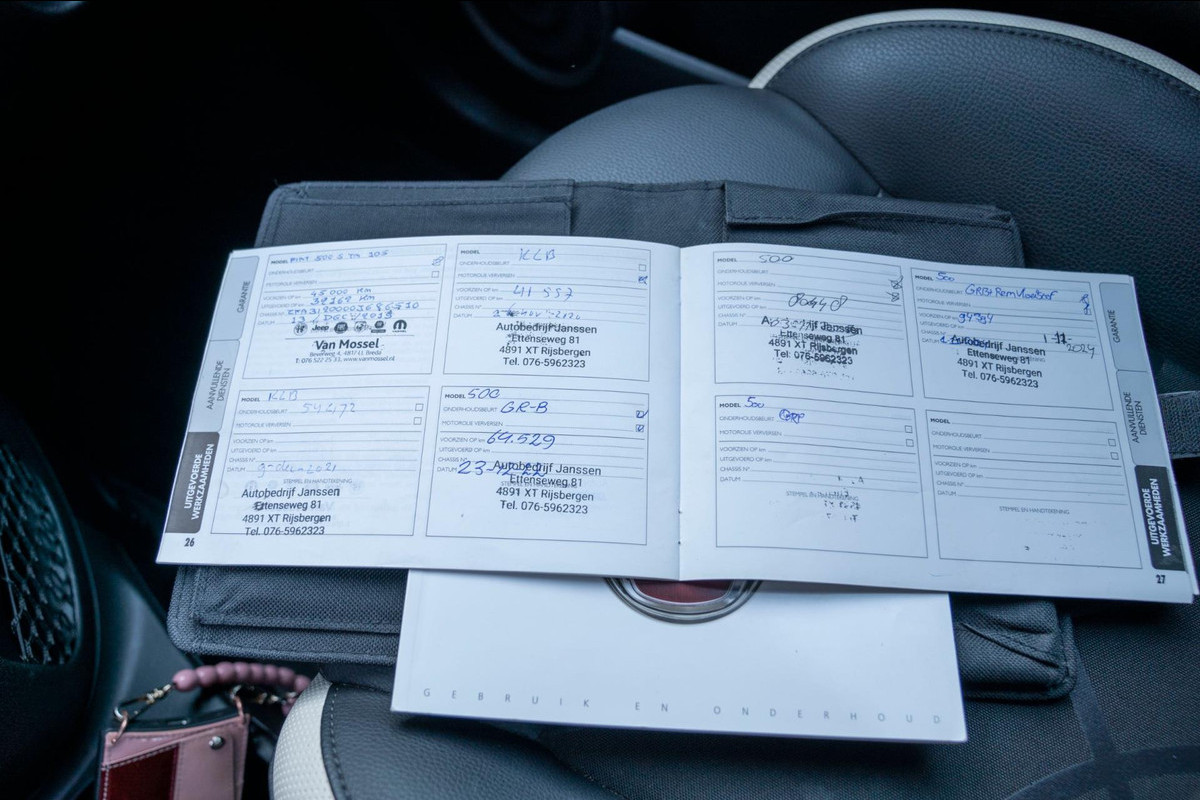 GARANTIE
AANVULLENDE
DIENSTEN
UITGEVOERDE
WERKZAAMHEDEN
MODEL FIAT 500 S TA 105
ONDERHOUDSBEURT
MOTOROLIE VERVERSEN
VOORZIEN OP km 45 000 Km
UITGEVOERD OP km 32168 Km
CHASSIS N°
DATUM 13 DEC 2019
Jeep
Van Mossel
T: 076 522 75 33, www.vanmossel.nl
MODEL KLB
ONDERHOUDSBEURT
MOTOROLIE VERVERSEN
VOORZIEN OP km 41 557
UITGEVOERD OP km
CHASSIS N°
DATUM
Autobedrijf Janssen
Ettenseweg 81
4891 XT Rijsbergen
Tel. 076-5962323
MODEL KLB
ONDERHOUDSBEURT 54472
MOTOROLIE VERVERSEN
VOORZIEN OP km
UITGEVOERD OP km
CHASSIS N°
DATUM 9-dec-2021
STEMPEL EN HANDTEKENING
Autobedrijf Janssen
Ettenseweg 81
4891 XT Rijsbergen
Tel. 076-5962323
MODEL 500
ONDERHOUDSBEURT GR-B
MOTOROLIE VERVERSEN
VOORZIEN OP km 64.529
UITGEVOERD OP km
CHASSIS N°
DATUM 23-12-22
Autobedrijf Janssen
Ettenseweg 81
4891 XT Rijsbergen
Tel. 076-5962323
26
MODEL 500
ONDERHOUDSBEURT
MOTOROLIE VERVERSEN
VOORZIEN OP km 80440
UITGEVOERD OP km
CHASSIS N°
DATUM
Autobedrijf Janssen
Ettenseweg 81
4891 XT Rijsbergen
Tel. 076-5962323
MODEL 500
ONDERHOUDSBEURT GRB+Remvloeistof
MOTOROLIE VERVERSEN
VOORZIEN OP km 94394
UITGEVOERD OP km
CHASSIS N°
DATUM 2024
Autobedrijf Janssen
Ettenseweg 81
4891 XT Rijsbergen
Tel. 076-5962323
MODEL 500
ONDERHOUDSBEURT
MOTOROLIE VERVERSEN
VOORZIEN OP km
UITGEVOERD OP km
CHASSIS N°
DATUM
STEMPEL EN HANDTEKENING
MODEL
ONDERHOUDSBEURT
MOTOROLIE VERVERSEN
VOORZIEN OP km
UITGEVOERD OP km
CHASSIS N°
DATUM
STEMPEL EN HANDTEKENING
GARANTIE
AANVULLENDE
DIENSTEN
UITGEVOERDE
WERKZAAMHEDEN
27
GEBRUIK EN ONDERHOUD